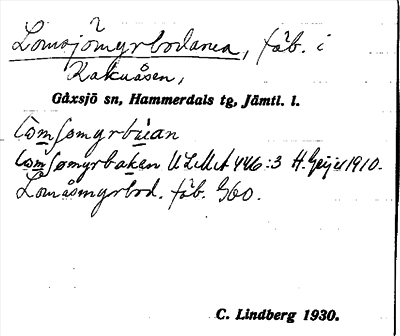 Lomsjömyrbodarna, fäb. i
Kakuåsen,
Gåxsjö sn, Hammerdals tg, Jämtl. l.
ULMA 446:3 H. Geijer 1910.
Lomåsmyrbod. fäb. GEO.
C. Lindberg 1930.